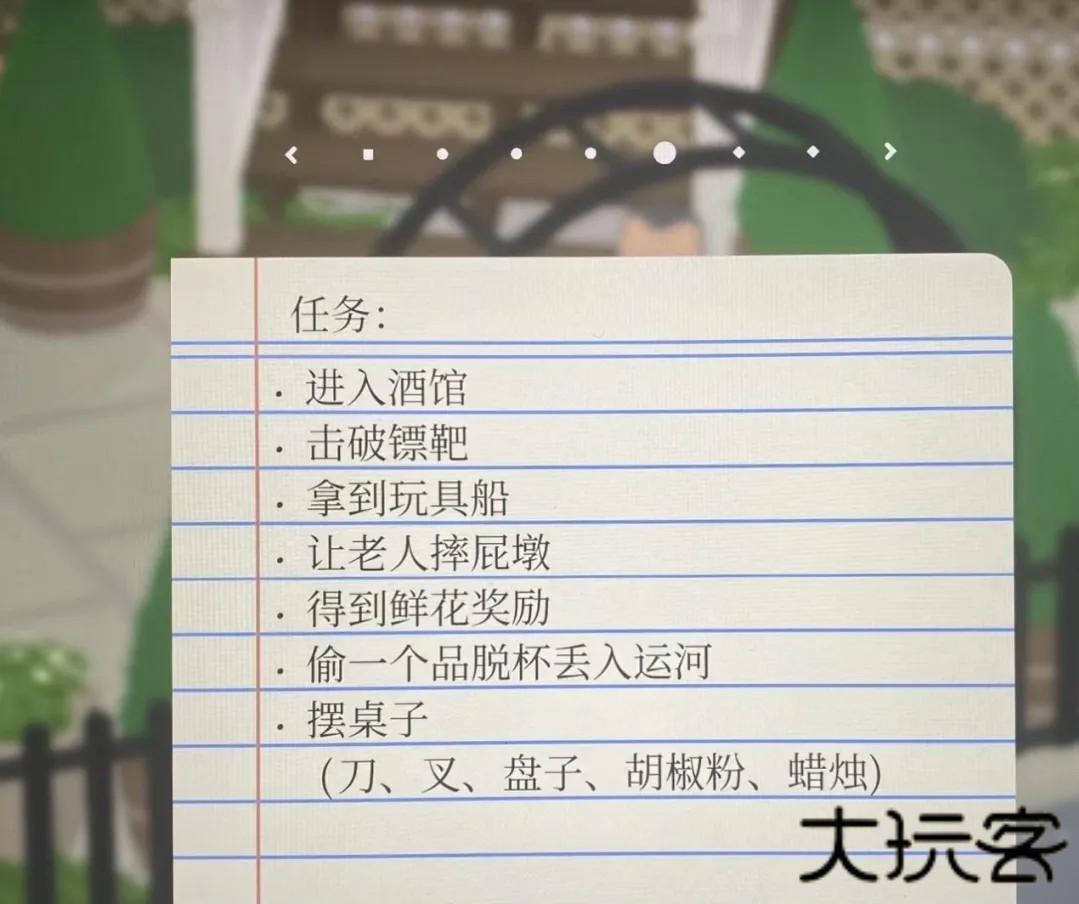 任务:
· 进入酒馆
· 击破镖靶
· 拿到玩具船
· 让老人摔屁墩
· 得到鲜花奖励
· 偷一个品脱杯丢入运河
· 摆桌子
(刀、叉、盘子、胡椒粉、蜡烛)
大玩客